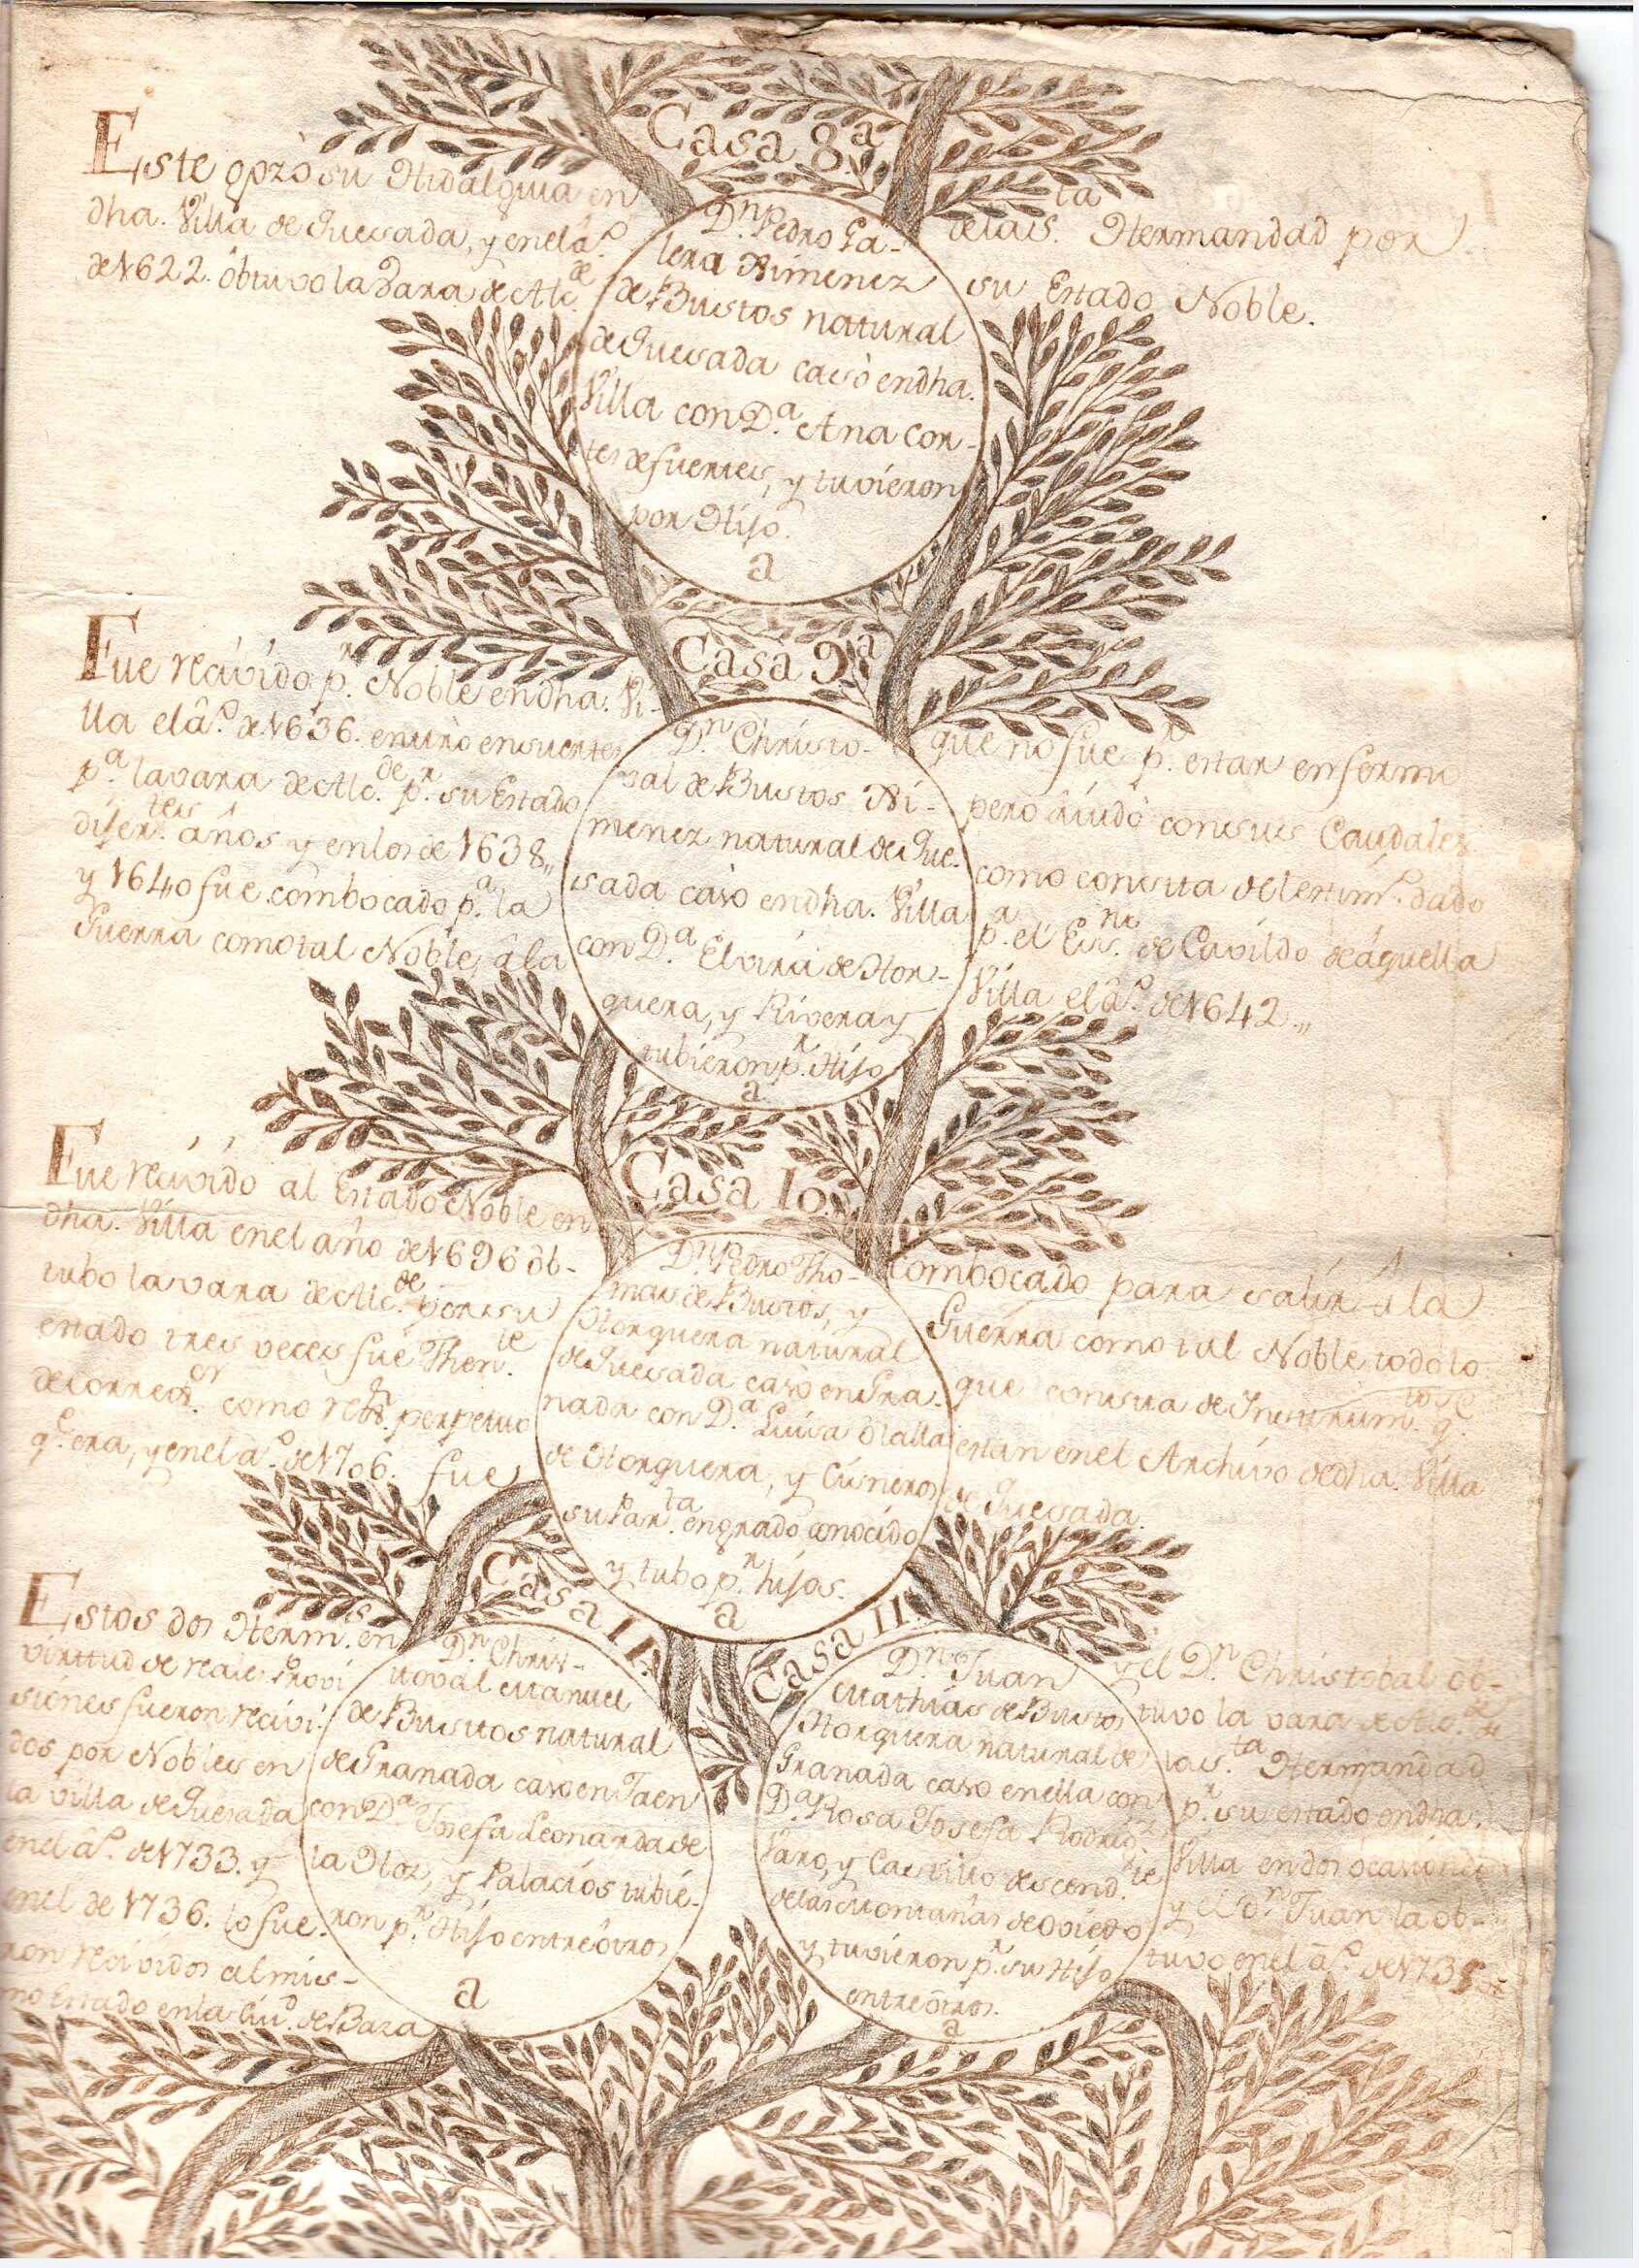 Casa 8.ª
Este gozò su Hidalguia en
dha. Villa de Quesada, y en el â.º
de 1622. obtuvo la Vara de Alc.de
de la S.ta Hermandad por
su Estado Noble.
D.n Pedro Ga-
lera Ximenez
de Bustos natural
de Quesada casò en dha.
Villa con D.ª Ana Cor-
tes de fuentes, y tuvieron
por Hijo.
a
Casa 9.ª
Fue recivido p.r Noble en dha. Vi-
lla el â.º de 1636. entrò en suertes
p.ª la vara de Alc.de p.r su Estado
difer.tes años y en los de 1638,,
y 1640 fue combocado p.ª la
Guerra como tal Noble, â la
que no fue p.r estar enfermo
pero âiudò con sus Caudales
como consta de testim.º dado
p.r el Ess.no de Cavildo de aquella
Villa el â.º de 1642.,,
D.n Christo-
val de Bustos Xi-
menez natural de Que-
sada casò en dha. Villa
con D.ª Elvira de Hor-
quera, y Rivera y
tubieron p.r Hijo
a
Casa 10.
Fue recivido al Estado Noble en
dha. Villa en el año de 1696 ôb-
tubo la vara de Alc.de por su
estado tres veces fue Then.te
de Correg.or como reg.r perpetuo
q.e era, y en el â.º de 1706. fue
combocado para salir â la
Guerra como tal Noble todo lo
que consta de Instrum.tos q.e
estan en el Archivo de dha. Villa
de Quesada.
D.n Pedro Tho-
mas de Bustos, y
Horquera natural
de Quesada casò en Gra-
nada con D.ª Luisa ôlalla
de Horquera, y Cisneros
su Par.ta en grado conocido
y tubo p.r hijos.
a
Casa 11.
Casa 11.
Estos dos Herm.s en
virttud de reales Provi
siones fueron recivi-
dos por Nobles en
la villa de Quesada
en el â.º de 1733. y
en el de 1736. lo fue-
ron recividos al mis-
mo Estado en la Ciu.d de Baza
D.n Chris-
toval Manuel
de Bustos natural
de Granada casò en Jaen
con D.ª Josefa Leonarda de
la Hoz, y Palacios tubie-
ron p.r Hijo entre ôtros
a
D.n Juan
Mathias de Bustos
Horquera natural de
Granada casò en ella con
D.ª Rosa Josefa Rodrig.z
Varo, y Castillo descend.te
de las Montañas de Oviedo
y tuvieron p.r su Hijo
entre ôtros.
a
y el D.n Christobal ob-
tuvo la vara de Alc.de de
la S.ta Hermandad
p.r su estado en dha.
Villa en dos ôcasiones
y el D.n Juan la ob-
tuvo en el â.º de 1738